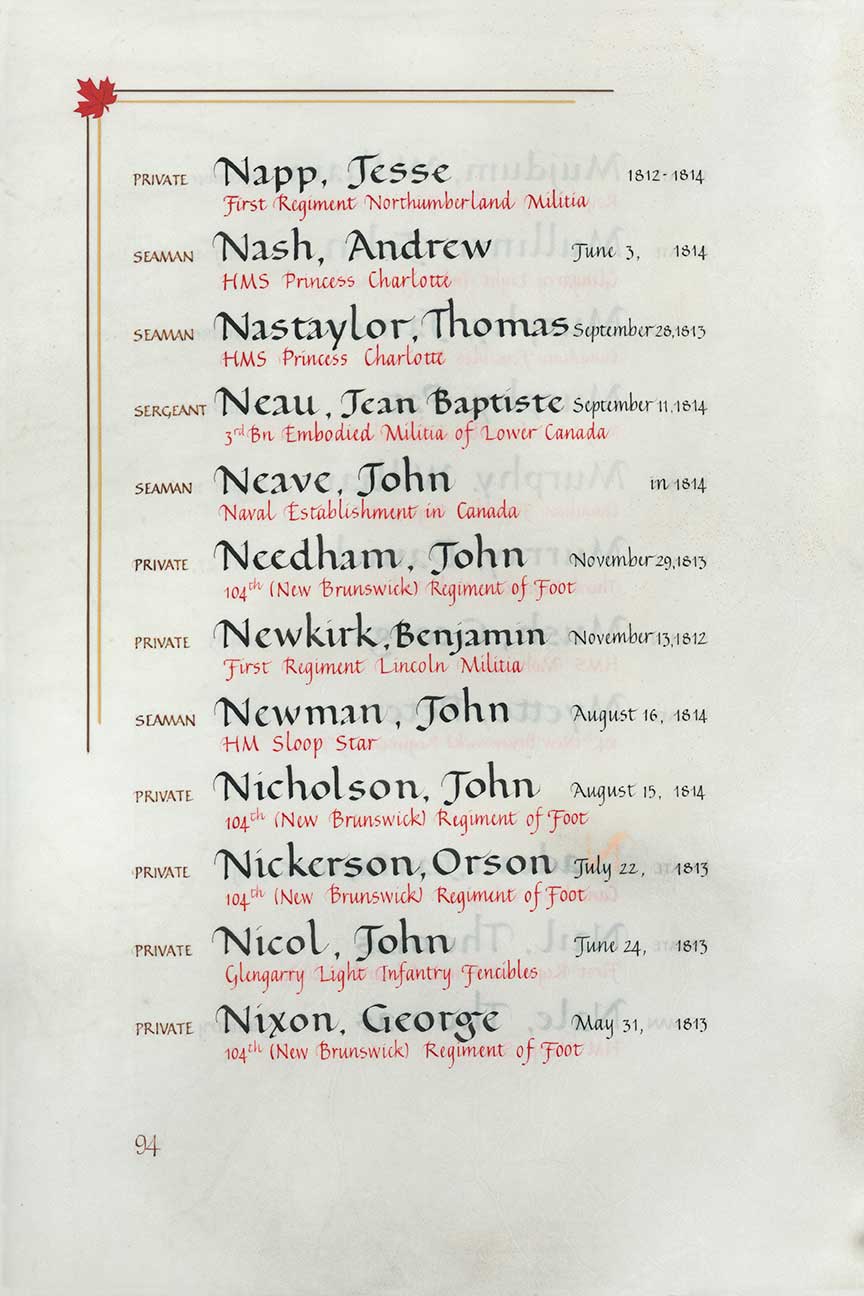 PRIVATE Napp, Jesse 1812-1814
First Regiment Northumberland Militia
SEAMAN Nash, Andrew June 3, 1814
HMS Princess Charlotte
SEAMAN Nastaylor, Thomas September 28, 1813
HMS Princess Charlotte
SERGEANT Neau, Jean Baptiste September 11, 1814
3rd Bn Embodied Militia of Lower Canada
SEAMAN Neave, John in 1814
Naval Establishment in Canada
PRIVATE Needham, John November 29, 1813
104th (New Brunswick) Regiment of Foot
PRIVATE Newkirk, Benjamin November 13, 1812
First Regiment Lincoln Militia
SEAMAN Newman, John August 16, 1814
HM Sloop Star
PRIVATE Nicholson, John August 15, 1814
104th (New Brunswick) Regiment of Foot
PRIVATE Nickerson, Orson July 22, 1813
104th (New Brunswick) Regiment of Foot
PRIVATE Nicol, John June 24, 1813
Glengarry Light Infantry Fencibles
PRIVATE Nixon, George May 31, 1813
104th (New Brunswick) Regiment of Foot
94